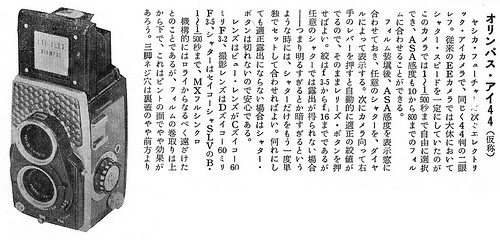 オリンパス・アイ44（仮称）
ヤシカ・フューチャー，ズ・エレクトリ
ックアイつきで、同じく4×4判の二眼
レフ。従来のEEカメラでは大体において
シャター・スピードを一定にしていたのが
このカメラでは1/1〜1/500秒まで自由に選択
でき、ASA感度も10から800までのフィル
ムに合わせることができる。
フィルム装塡後、ASA感度を表示窓に
合わせておき、任意のシャターを、ダイヤ
ルによって表示する。次にカメラ向って右
手のレバーを押すと自動的に適正の絞値が
でるので、そのままレリーズ・ボタンを押
せばよい。絞はf:3.5からf:16まであるが
任意のシャターでは露出が得られない場合
――つまり明るすぎるとか暗すぎるという
ような時には、シャターだけをもう一度単
独でセットして合わせればよい。何れにし
ても適正露出にならない場合はシャター・
ボタンは切れないので安心である。
レンズはビュー・レンズがCズイコー60
ミリF:3.2、撮影レンズはDズイコー60ミリ
F:3.5、シャターはセイコーシャSLVのB・
1/1〜1/500秒まで、MXフル・シンクロ
機構的にはローライからなるべく遠ざけた
とのことであるが、フィルムの巻取りは上
から下で、これはピントの面でやや効果が
あろう。三脚ネジ穴は裏蓋のやや前方より